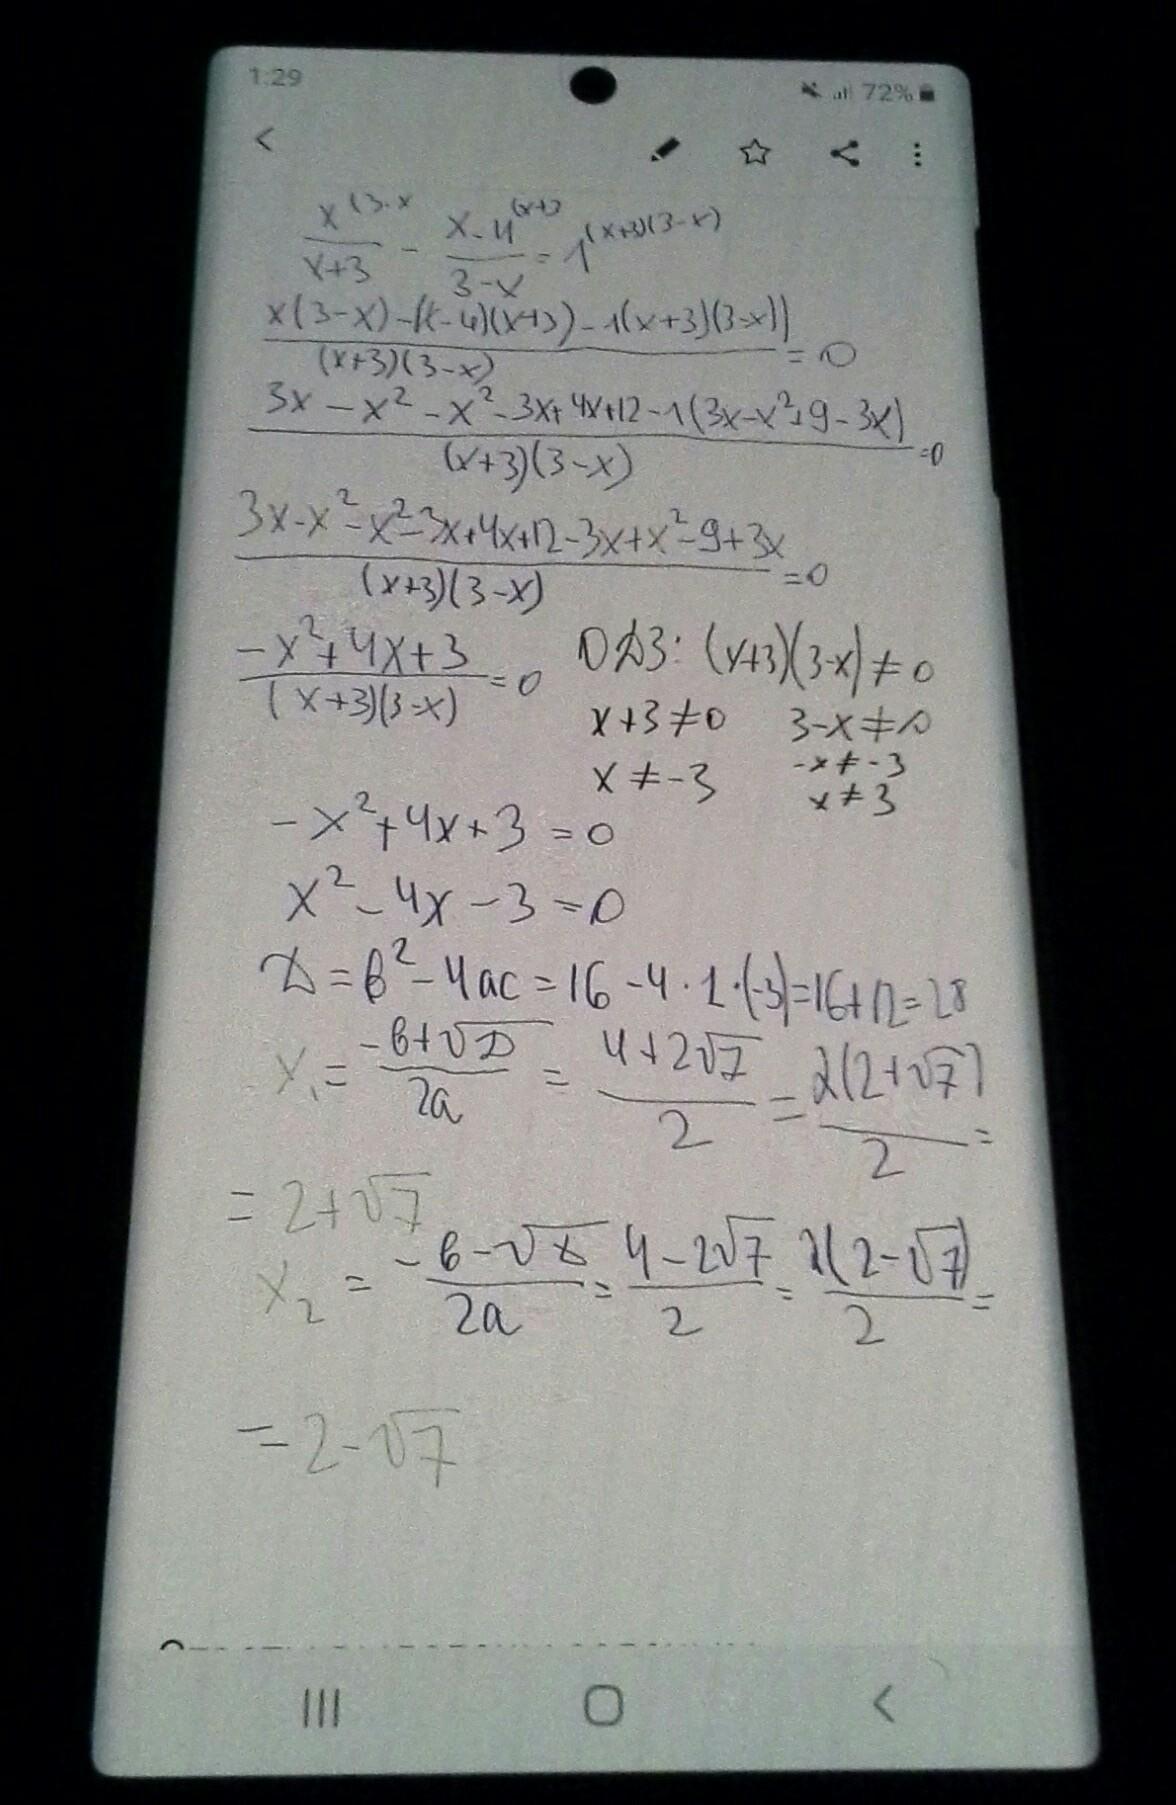 1:29 72%
x^(3-x / x+3 - x-4^(x+3 / 3-x = 1^(x+3)(3-x)
x(3-x)-(x-4)(x+3)-1(x+3)(3-x)) / (x+3)(3-x) = 0
3x-x²-x²-3x+4x+12-1(3x-x²+9-3x) / (x+3)(3-x) = 0
3x-x²-x²-3x+4x+12-3x+x²-9+3x / (x+3)(3-x) = 0
-x²+4x+3 / (x+3)(3-x) = 0 ОДЗ: (x+3)(3-x)≠0
x+3≠0 3-x≠0
x≠-3 -x≠-3
x≠3
-x²+4x+3=0
x²-4x-3=0
Д=в²-4ac=16-4·1·(-3)=16+12=28
x₁= -в+√Д / 2a = 4+2√7 / 2 = 2(2+√7) / 2 =
=2+√7
x₂ = -в-√Д / 2a = 4-2√7 / 2 = 2(2-√7) / 2 =
=2-√7